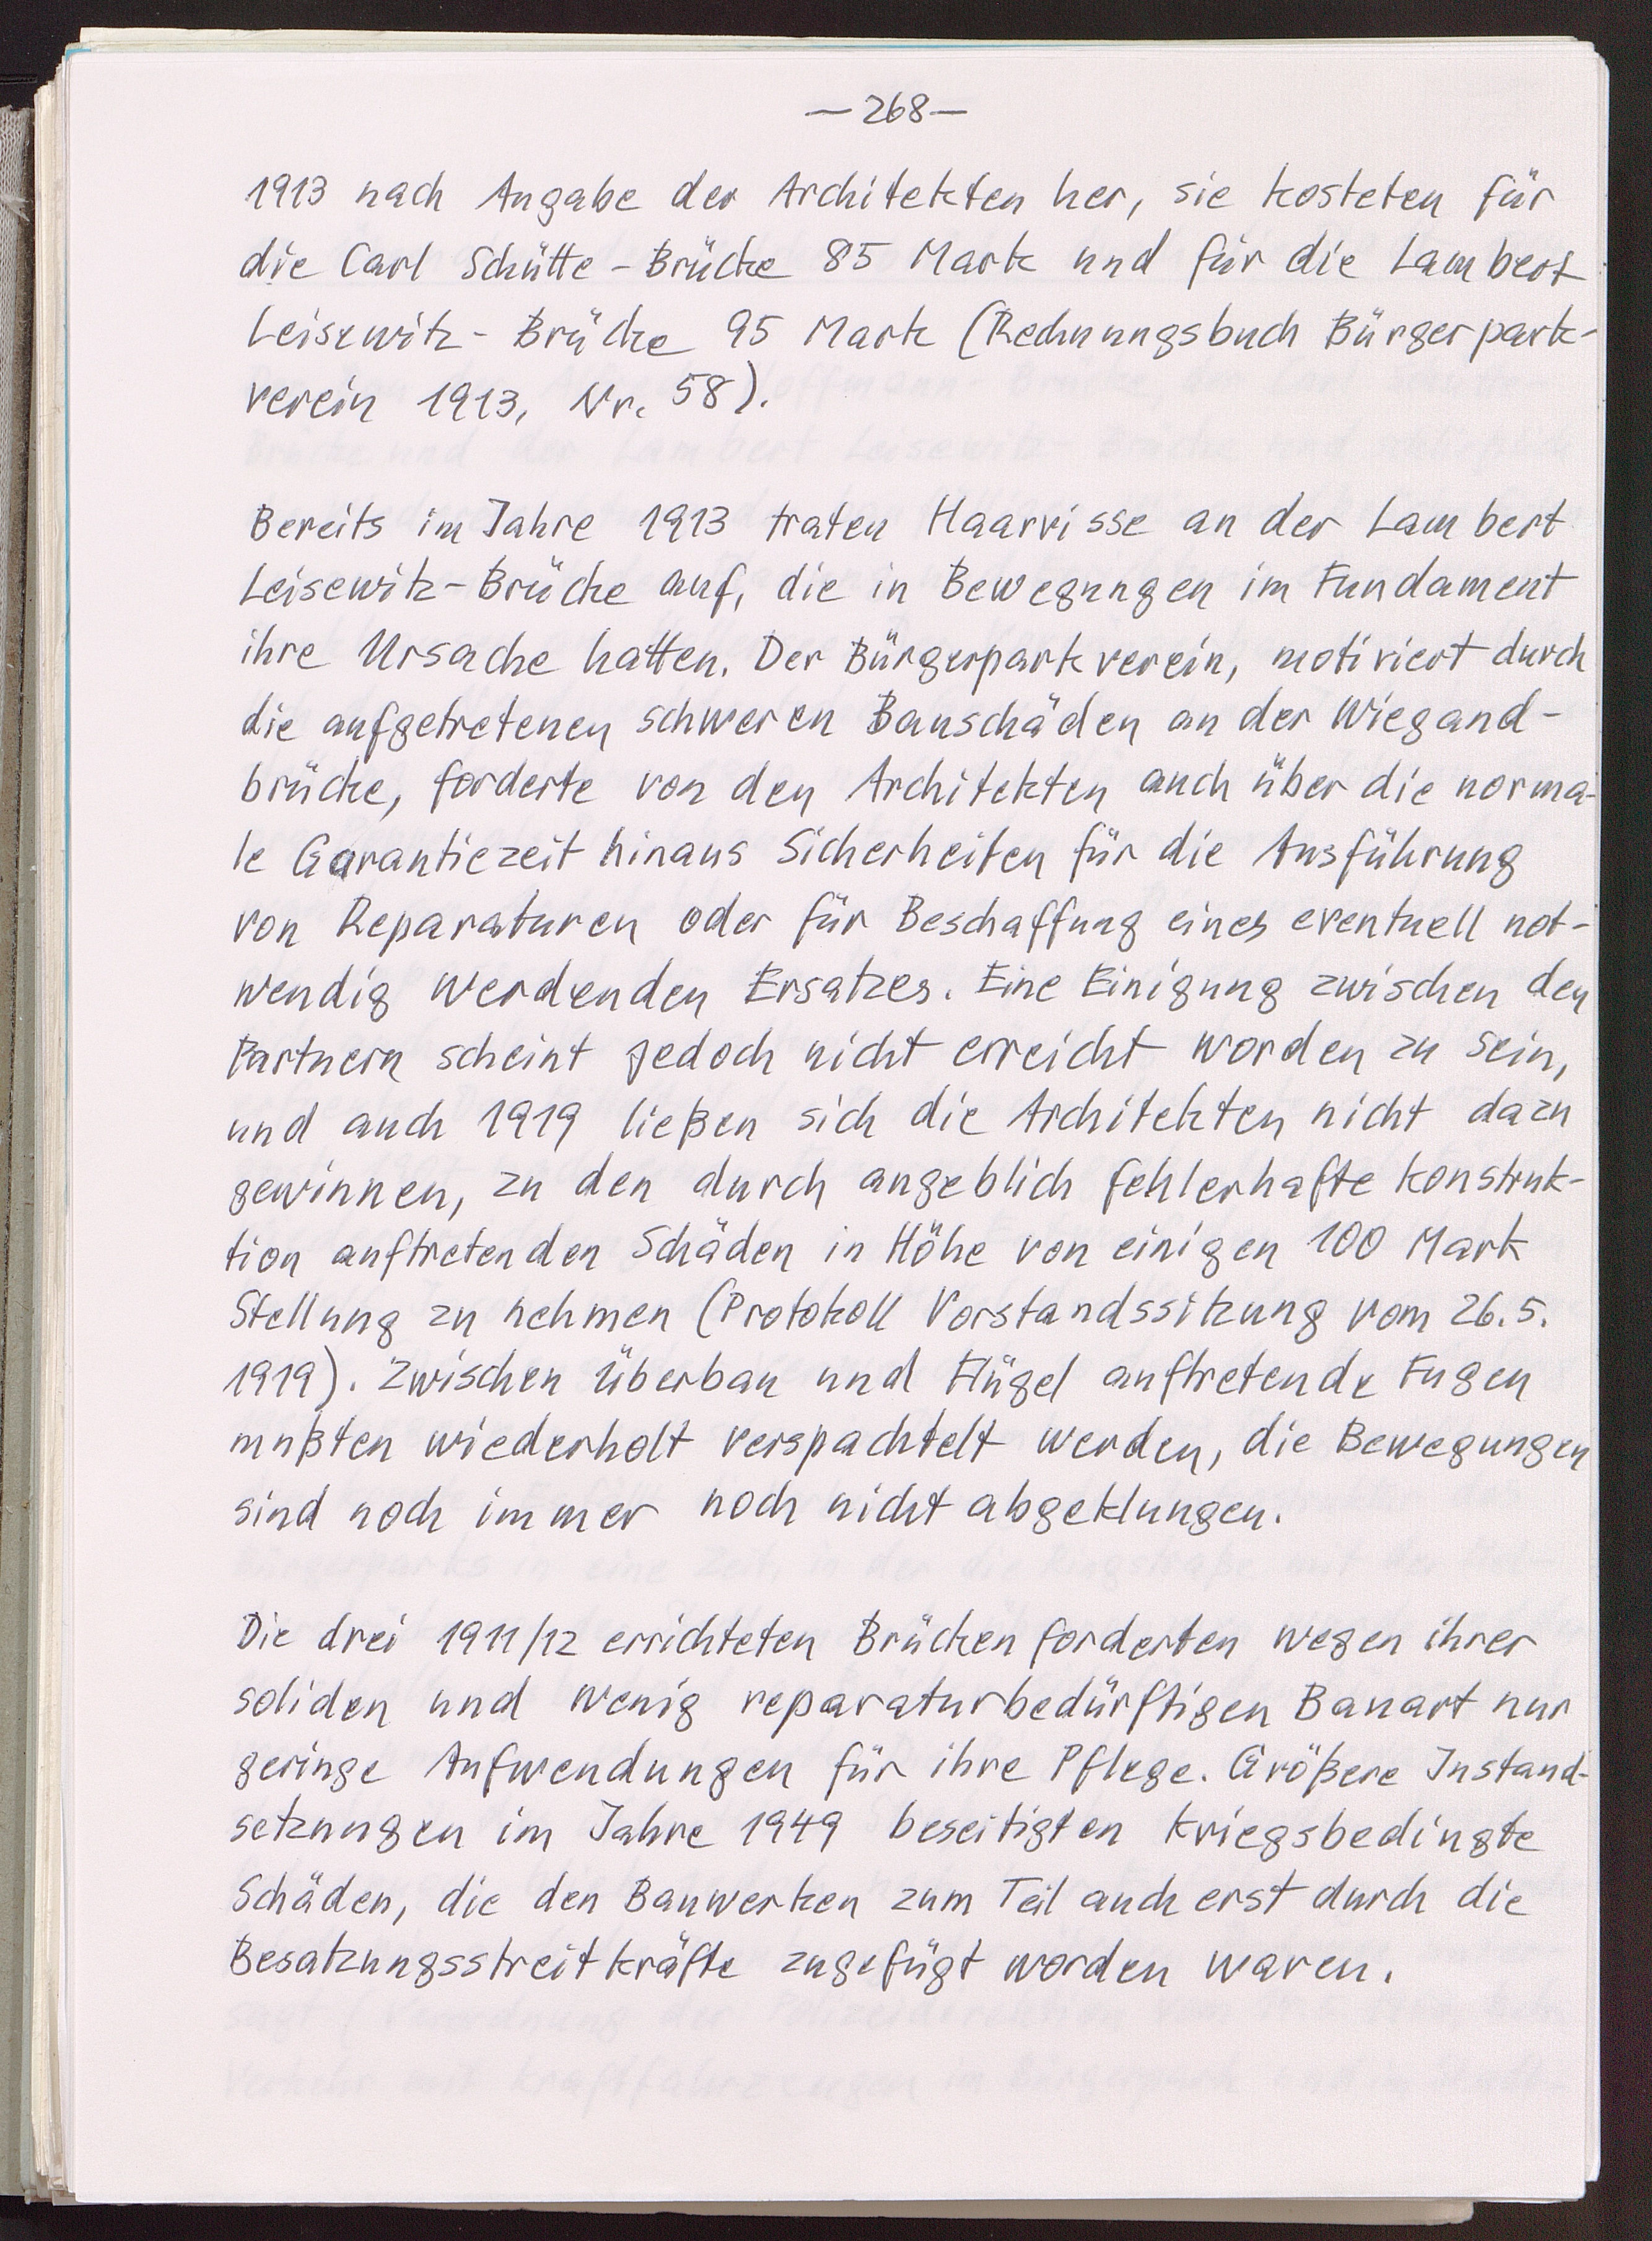 — 268 —
1913 nach Angabe der Architekten her, sie kosteten für
die Carl Schütte-Brücke 85 Mark und für die Lambert
Leisewitz-Brücke 95 Mark (Rechnungsbuch Bürgerpark-
verein 1913, Nr. 58).
Bereits im Jahre 1913 traten Haarrisse an der Lambert
Leisewitz-Brücke auf, die in Bewegungen im Fundament
ihre Ursache hatten. Der Bürgerparkverein, motiviert durch
die aufgetretenen schweren Bauschäden an der Wiegand-
brücke, forderte von den Architekten auch über die norma-
le Garantiezeit hinaus Sicherheiten für die Ausführung
von Reparaturen oder für Beschaffung eines eventuell not-
wendig werdenden Ersatzes. Eine Einigung zwischen den
Partnern scheint jedoch nicht erreicht worden zu sein,
und auch 1919 ließen sich die Architekten nicht dazu
gewinnen, zu den durch angeblich fehlerhafte Konstruk-
tion auftretenden Schäden in Höhe von einigen 100 Mark
Stellung zu nehmen (Protokoll Vorstandssitzung vom 26.5.
1919). Zwischen Überbau und Flügel auftretende Fugen
mußten wiederholt verspachtelt werden, die Bewegungen
sind noch immer noch nicht abgeklungen.
Die drei 1911/12 errichteten Brücken forderten wegen ihrer
soliden und wenig reparaturbedürftigen Bauart nur
geringe Aufwendungen für ihre Pflege. Größere Instand-
setzungen im Jahre 1949 beseitigten kriegsbedingte
Schäden, die den Bauwerken zum Teil auch erst durch die
Besatzungsstreitkräfte zugefügt worden waren.